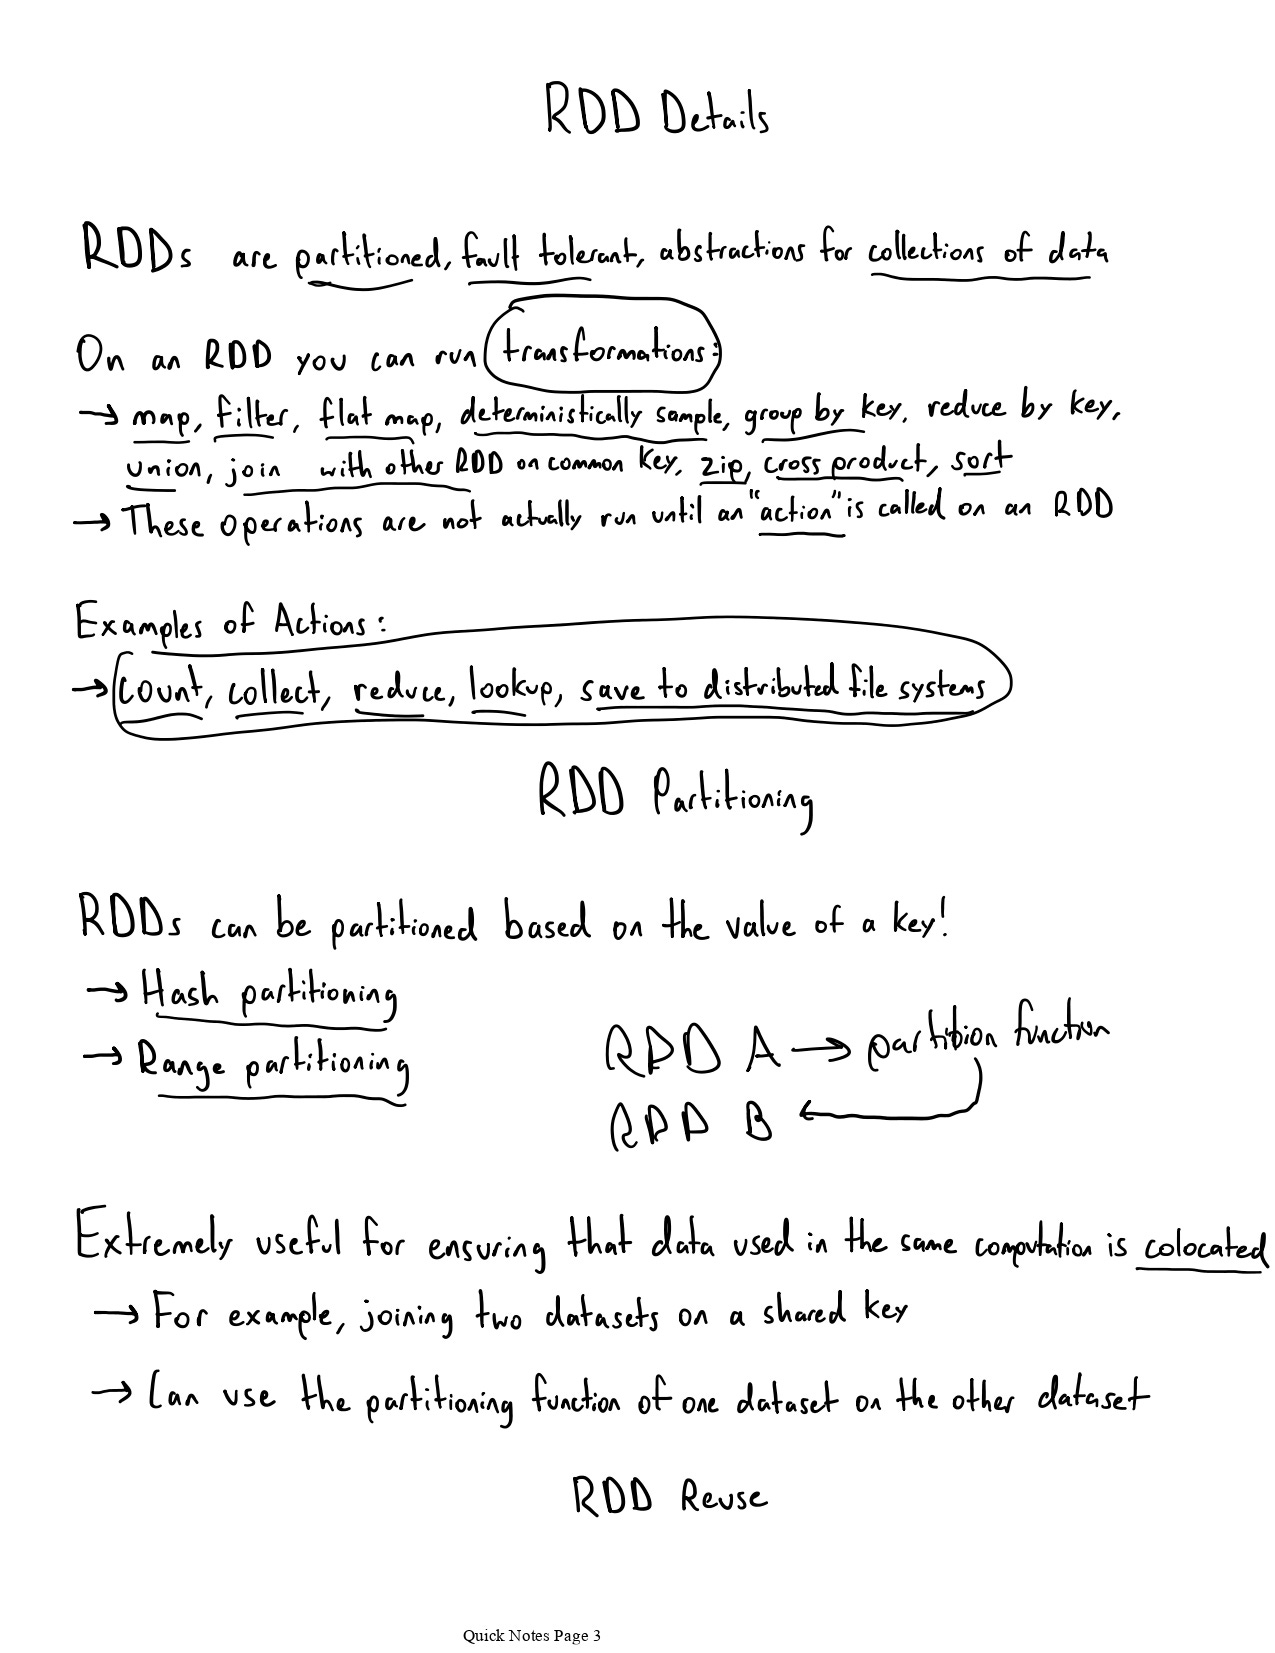 RDD Details
RDDs are partitioned, fault tolerant, abstractions for collections of data
On an RDD you can run transformations:
→ map, filter, flat map, deterministically sample, group by key, reduce by key,
union, join with other RDD on common key, zip, cross product, sort
→ These operations are not actually run until an "action" is called on an RDD
Examples of Actions:
→ count, collect, reduce, lookup, save to distributed file systems
RDD Partitioning
RDDs can be partitioned based on the value of a key!
→ Hash partitioning
→ Range partitioning
RDD A → partition function
RDD B ←
Extremely useful for ensuring that data used in the same computation is colocated
→ For example, joining two datasets on a shared key
→ Can use the partitioning function of one dataset on the other dataset
RDD Reuse
Quick Notes Page 3